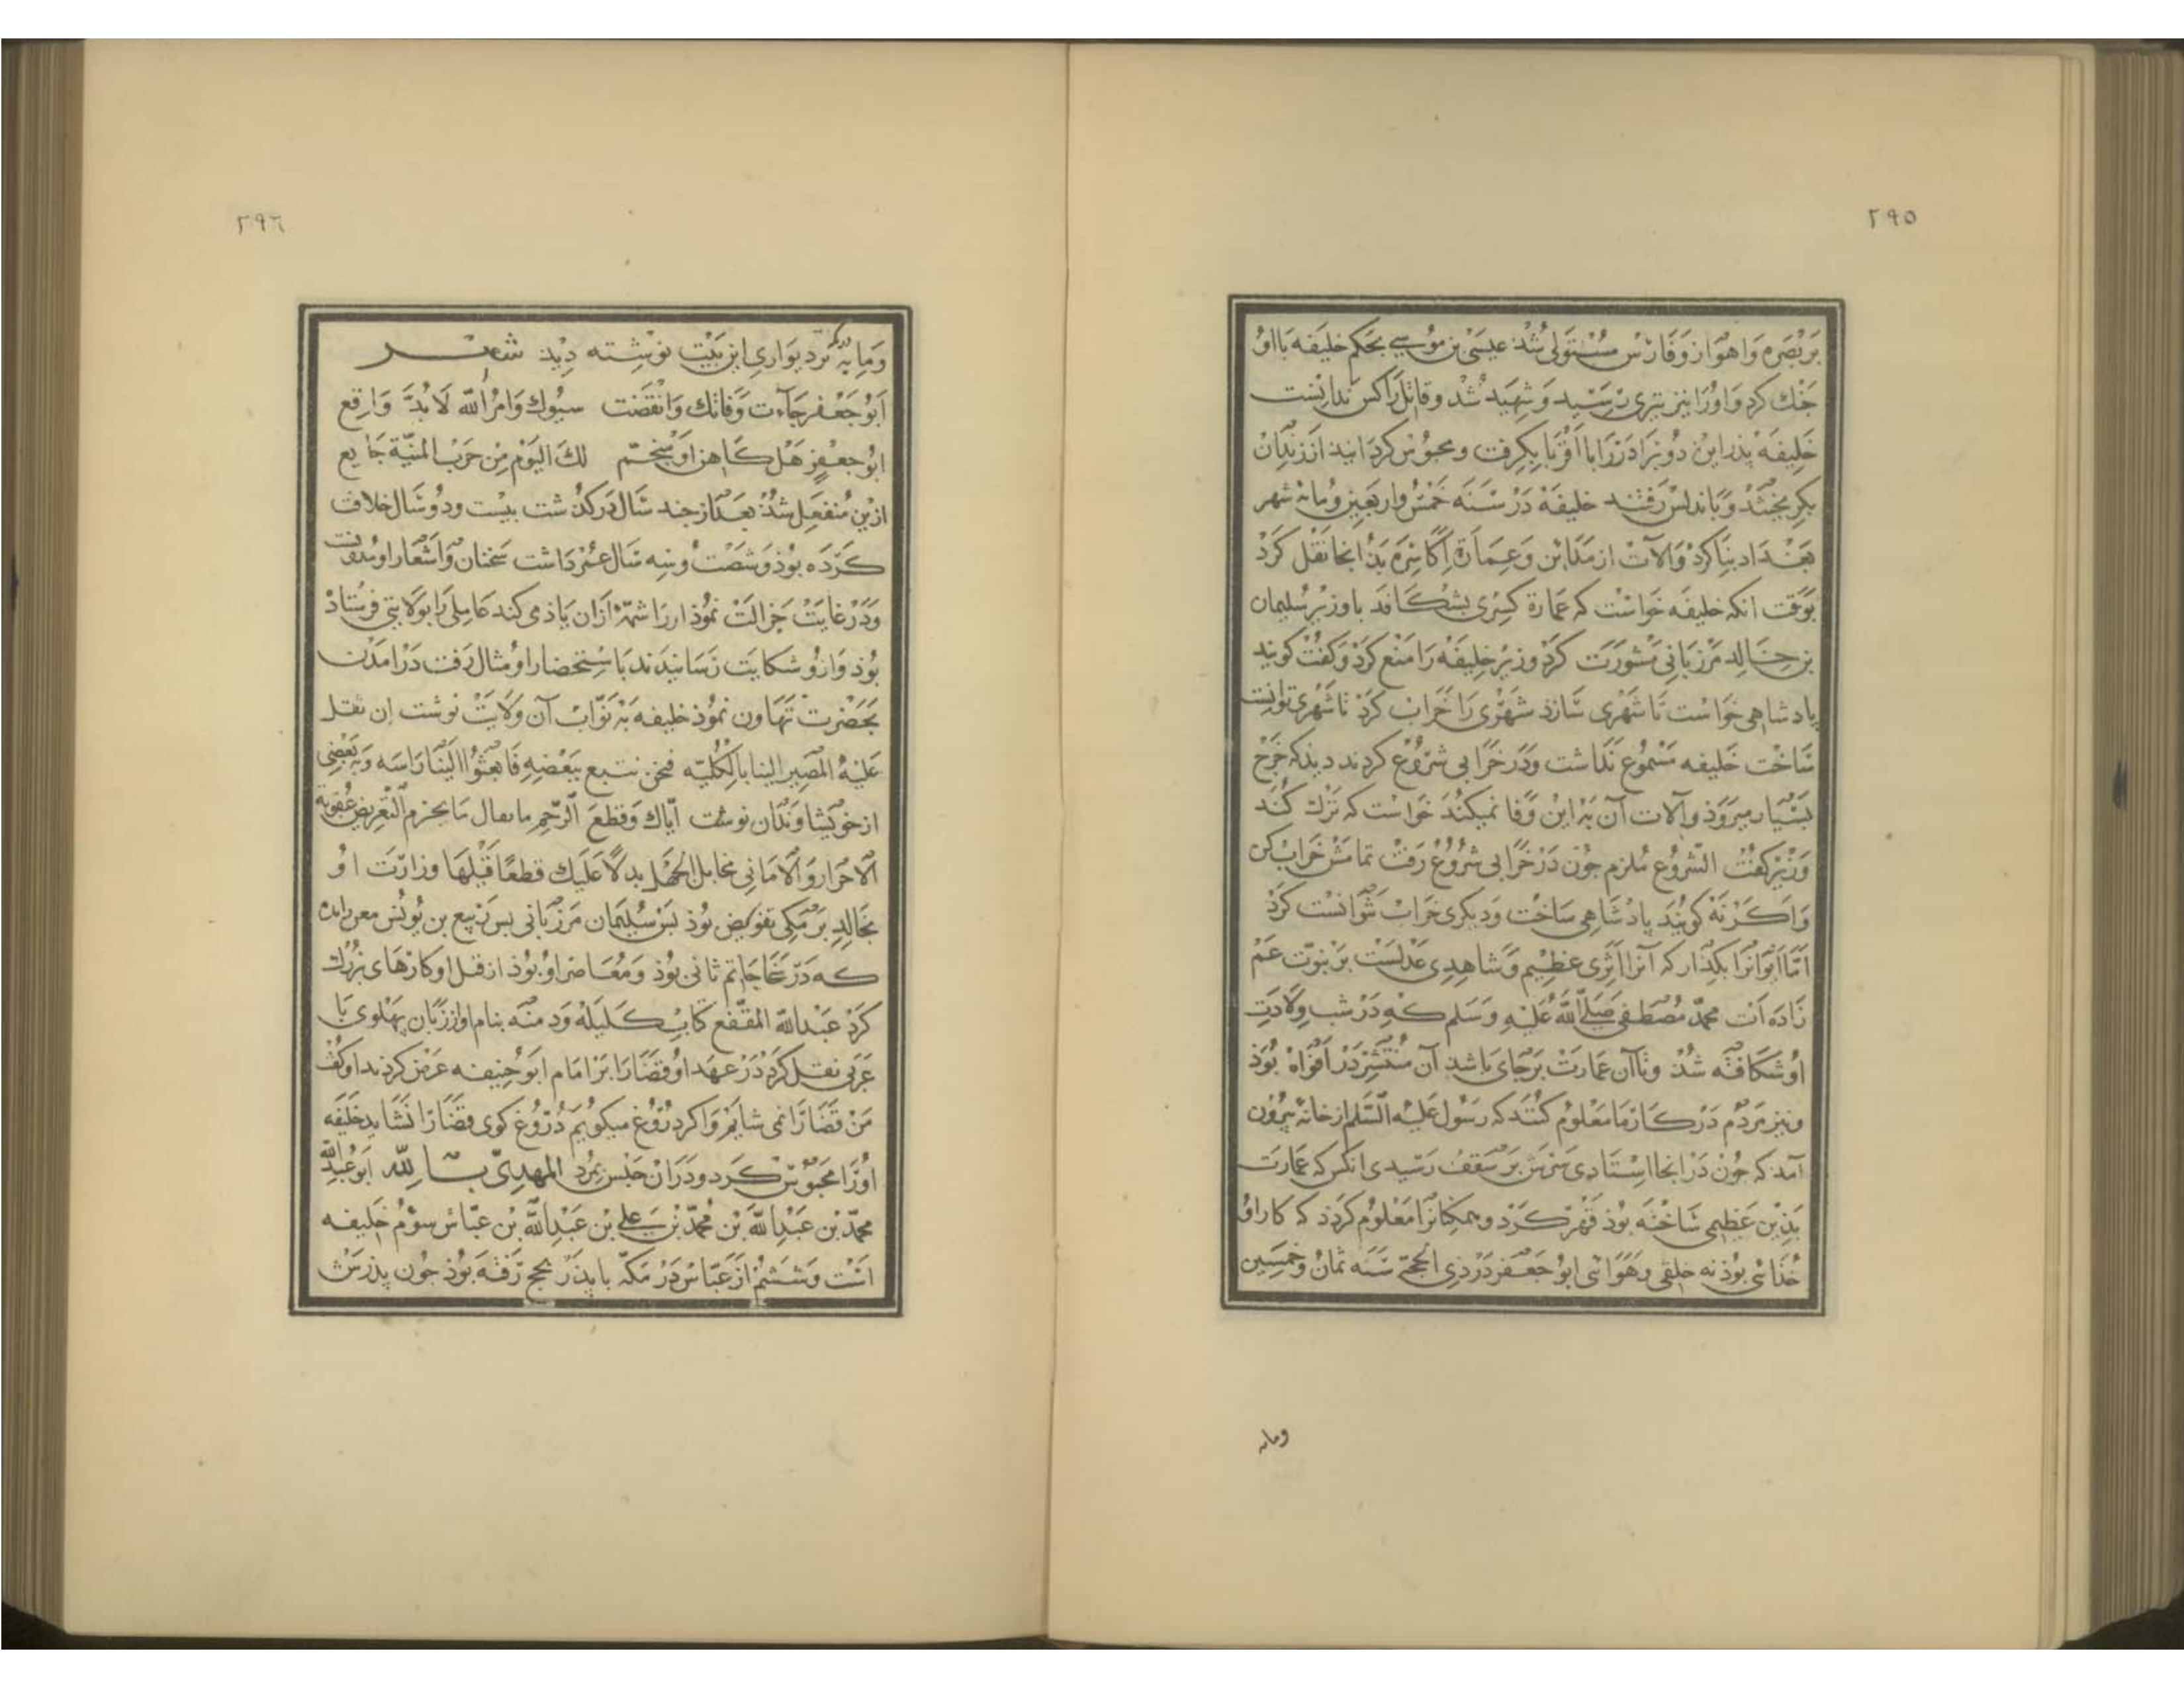 ٢٩٥
بر بصره و اهواز و فارس مستولی شذ عیسی بن موسی بحکم خلیفه با او
جنک کرد و او را نیز تیری رسید و شهید شد و قاتل را کس ندانست
خلیفه پذر این دو برادر را با اقربا بکرفت و محبوس کردانید از زندان
بکریختند و باندلس رفتند خلیفه در سنه خمس و اربعین و مائه شهر
بغداد بنا کرد و آلات از مداین و عمارة اکاسره بذانجا نقل کرد
بوقت انکه خلیفه خواست که عمارة کسری بشکافد با وزیر سلیمان
بن خالد مرزبانی مشورت کرد وزیر خلیفه را منع کرد و کفت کویند
پادشاهی خواست تا شهری سازد شهری را خراب کرد تا شهری توانست
ساخت خلیفه مسموع نداشت و در خرابی شروع کردند دیدند که خرج
بسیار میروذ و آلات آن به این وفا نمیکند خواست که ترک کند
وزیر کفت الشروع ملزم جون در خرابی شروع رفت تمامش خراب کن
و اکر نه کویند پادشاهی ساخت و دیکری خراب نتوانست کرد
اما ایوانرا بکذار که آنرا اثری عظیم و شاهدی عدلست بر نبوت عم
زاده ات محمد مصطفی صلی الله علیه وسلم که در شب ولادت
او شکافته شذ و تا آن عمارت برجای باشد آن منتشر در افواه بوذ
و نیز مردم در کار ما معلوم کنند که رسول علیه السلم از خانه بیرون
آمد که جون در انجا استادی سرش بر سقف رسیدی انکس که عمارت
بذین عظیمی ساخته بوذ قهر کرد و همکنانرا معلوم کردد که کار او
خذائی بوذ نه خلقی و هوائی ابو جعفر در ذی الحجه سنه ثمان و خمسین
ومایه
٢٩٦
ومایه بر دیواری این بیت نوشته دید شعر
ابو جعفر جاءت وفاتك وانقضت سنوك وامر الله لا بد واقع
ابو جعفر هل کاهن او منجم لك اليوم من حرب المنیة جا یع
ازین منفعل شذ بعد از جند سال درکذشت بیست و دو سال خلافت
کرده بوذ و شصت و سه سال عمر داشت سخنان و اشعار او مدونست
و در غایت جزالت نموذار را شمهٔ ازان یاذ می کند عاملی را بولایتی فرستاذ
بوذ و ازو شکایت رسانیدند باستحضار او مثال رفت در امدن
بحضرت تهاون نموذ خلیفه به نواب آن ولایت نوشت ان ثقل
علیه المصیر الینا بالکلیه فنحن نتبع ببعضه فابعثوا الینا راسه و به بعضی
از خویشاوندان نوشت ایاك وقطع الرحم التعریض عقوبة
الاحرار والامانی مخایل الجهل بدلا علیك قطعا قبلها وزارت او
بخالد برمکی تفویض بوذ بس سلیمان مرزبانی بس ربیع بن یونس معن زایده
که در سخا حاتم ثانی بوذ و معاصر او بوذ از قبل او کارهای بزرك
کرد عبد الله المقفع کتاب کلیله و دمنه بنام او از زبان پهلوی با
عربی نقل کرد در عهد او قضا را بر امام ابو حنیفه عرض کردند او کفت
من قضا را نمی شایم و اکر دروغ میکویم دروغ کوی قضا را نشاید خلیفه
او را محبوس کرد و دران حبس بمرد المهدی بالله ابو عبد الله
محمد بن عبد الله بن محمد بن علی بن عبد الله بن عباس سوم خلیفه
است و ششم از عباس در مکه با پذر بحج رفته بوذ جون پذرش